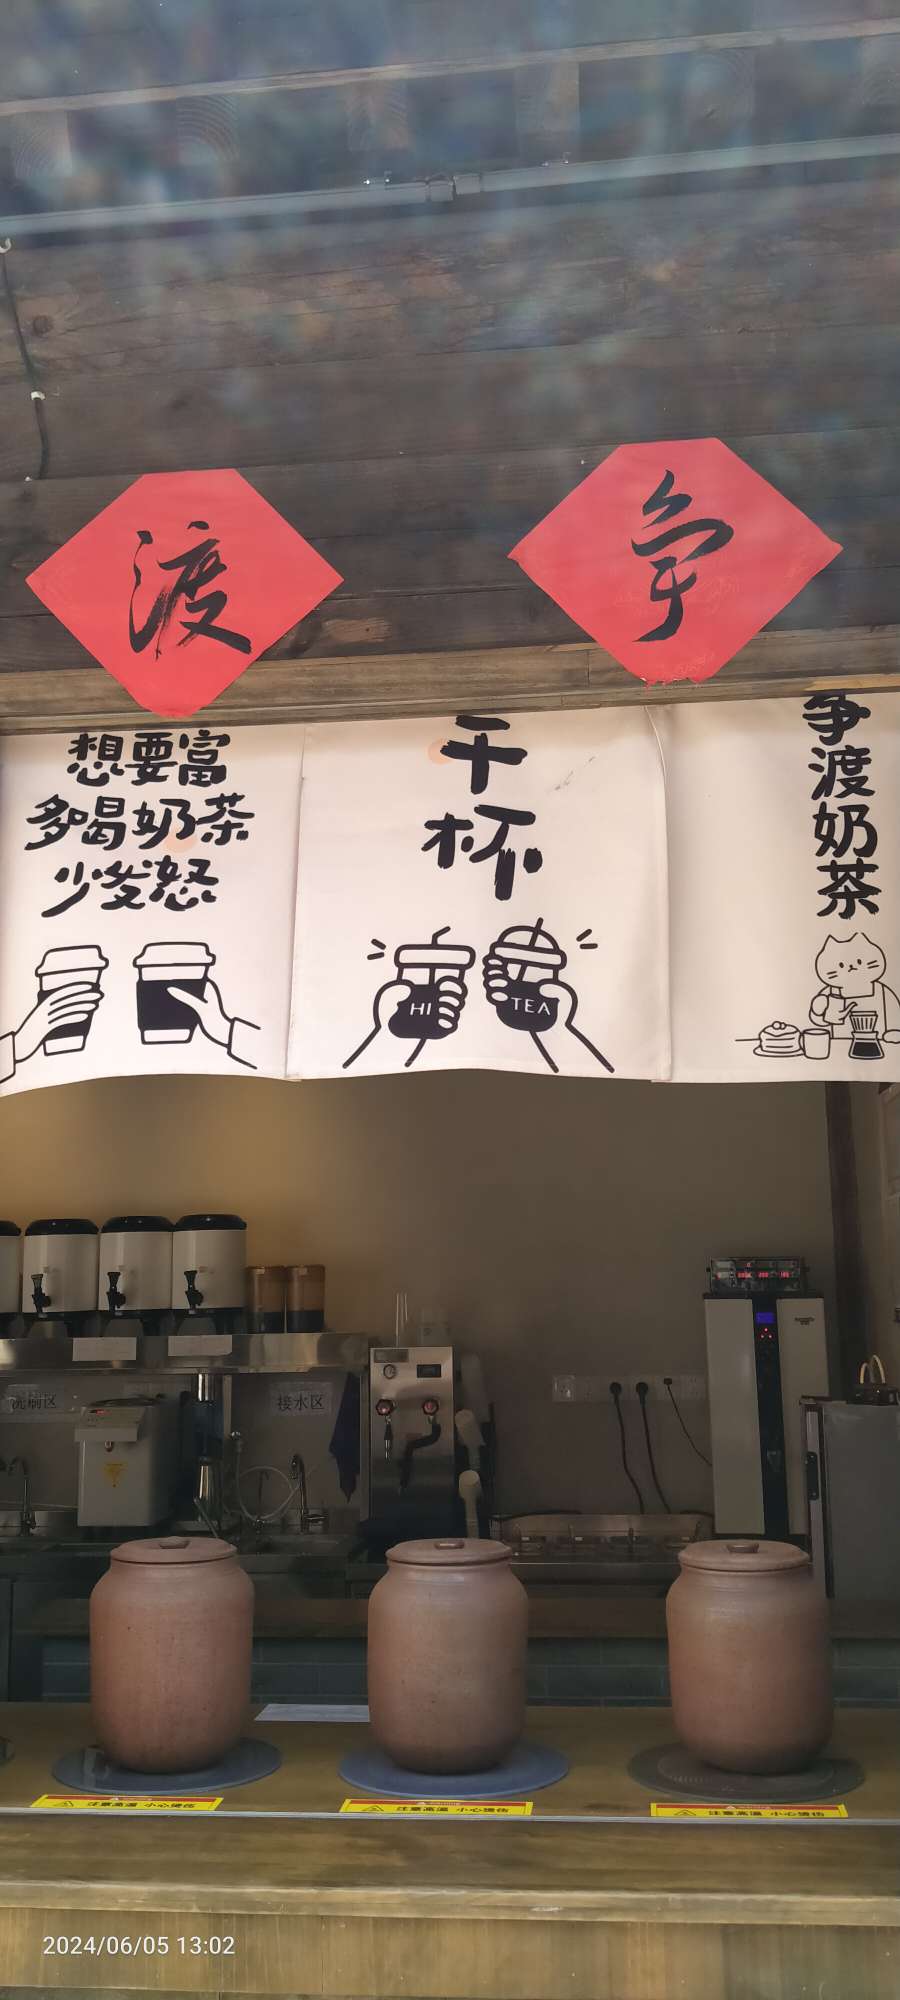 渡
争
想要富
多喝奶茶
少发怒
干
杯
HI
TEA
争
渡
奶
茶
洗刷区
接水区
注意高温 小心烫伤
注意高温 小心烫伤
注意高温 小心烫伤
2024/06/05 13:02